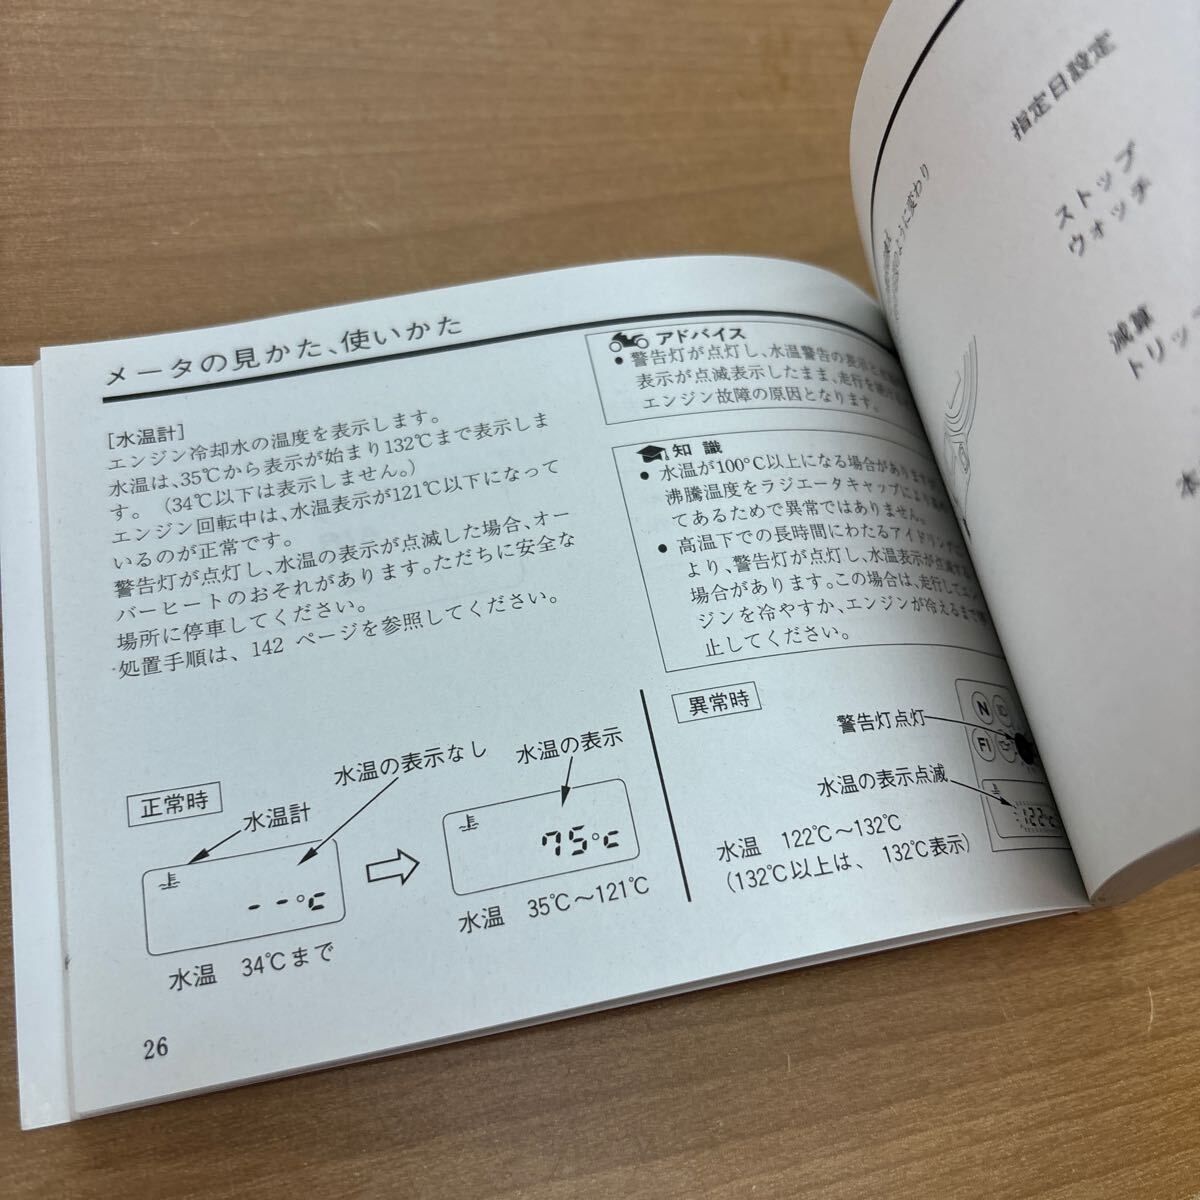 メータの見かた、使いかた
[水温計]
エンジン冷却水の温度を表示します。
水温は、35℃から表示が始まり132℃まで表示しま
す。(34℃以下は表示しません。)
エンジン回転中は、水温表示が121℃以下になって
いるのが正常です。
警告灯が点灯し、水温の表示が点滅した場合、オー
バーヒートのおそれがあります。ただちに安全な
場所に停車してください。
処置手順は、142 ページを参照してください。
アドバイス
● 警告灯が点灯し、水温警告の表示と
表示が点滅表示したまま、走行を続け
エンジン故障の原因となります。
知識
● 水温が100℃以上になる場合がありますが
沸騰温度をラジエータキャップにより
てあるためで異常ではありません。
● 高温下での長時間にわたるアイドリング
より、警告灯が点灯し、水温表示が点滅する
場合があります。この場合は、走行してエン
ジンを冷やすか、エンジンが冷えるまで
止してください。
正常時
水温計
水温の表示なし
--℃
水温 34℃まで
水温の表示
75℃
水温 35℃～121℃
異常時
警告灯点灯
N
FI
水温の表示点滅
122℃
水温 122℃～132℃
(132℃以上は、132℃表示)
26
指定日設定
ストップ
ウォッチ
減算
トリッ
水
のように変わり